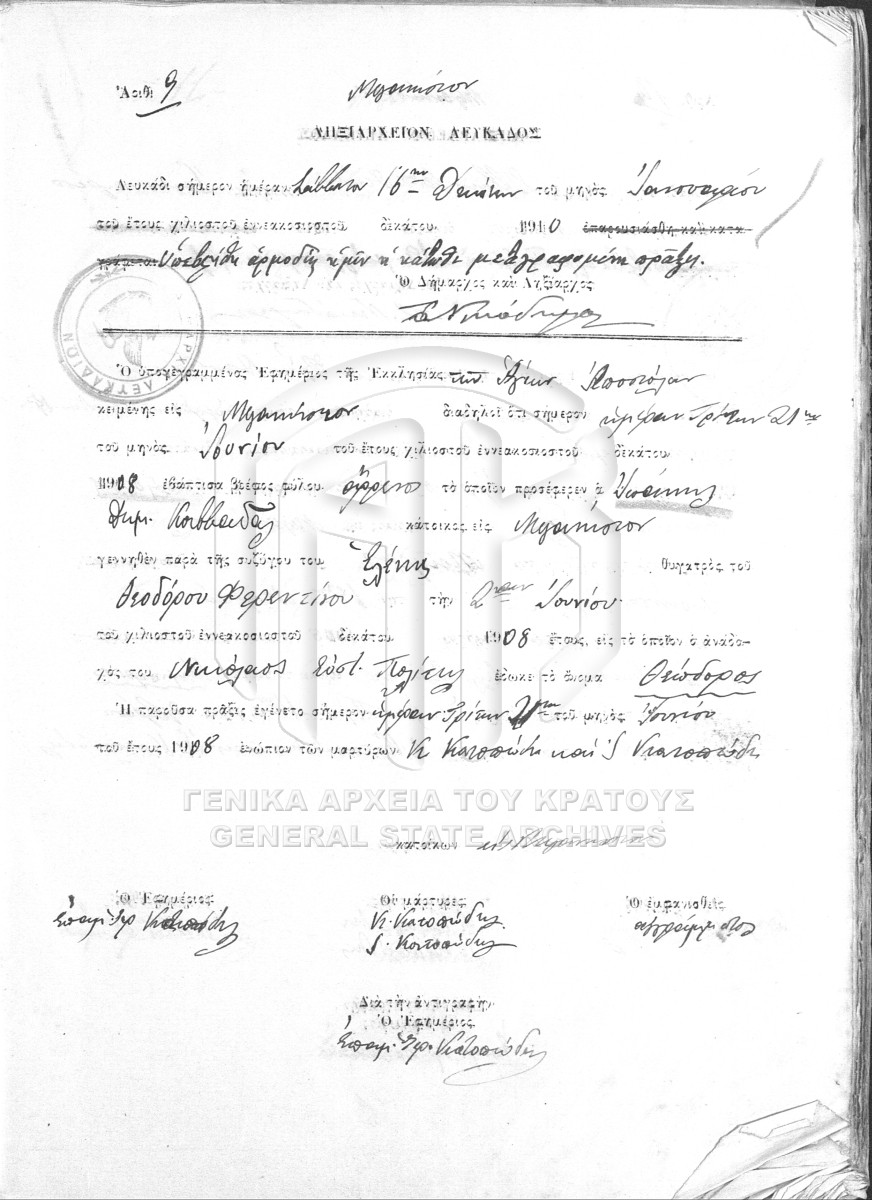 Ἀριθ. 9
ΛΗΞΙΑΡΧΕΙΟΝ ΛΕΥΚΑΔΟΣ
Λευκάδι σήμερον ἡμέραν Σάββατον 16ην τοῦ μηνὸς Ἰανουαρίου
τοῦ ἔτους χιλιοστοῦ ἐννεακοσιοστοῦ δεκάτου 1910 ἐπαρουσιάσθη καὶ κατα-
Ὑπεβλήθη ἁρμοδίως ἡμῖν ἡ κάτωθι μεταγραφομένη πρᾶξις.
Ὁ Δήμαρχος καὶ Ληξίαρχος
Ὁ ὑπογεγραμμένος Ἐφημέριος τῆς Ἐκκλησίας τῶν Ἁγίων Ἀποστόλων
κειμένης εἰς διαδηλοῖ ὅτι σήμερον ἡμέραν Τρίτην 21ην
τοῦ μηνὸς Ἰουνίου τοῦ ἔτους χιλιοστοῦ ἐννεακοσιοστοῦ δεκάτου
1908 ἐβάπτισα βρέφος φύλου ἄρρενος τὸ ὁποῖον προσέφερεν ὁ
Δημ. κάτοικος εἰς
γεννηθὲν παρὰ τῆς συζύγου του Ἑλένης θυγατρὸς τοῦ
Θεοδώρου Φερεντίνου τὴν 2αν Ἰουνίου
τοῦ χιλιοστοῦ ἐννεακοσιοστοῦ δεκάτου 1908 ἔτους, εἰς τὸ ὁποῖον ὁ ἀνάδο-
χός του Νικόλαος Εὐστ. Πολίτης ἔδωκε τὸ ὄνομα Θεόδωρος
Ἡ παροῦσα πρᾶξις ἐγένετο σήμερον ἡμέραν Τρίτην 21ην τοῦ μηνὸς Ἰουνίου
τοῦ ἔτους 1908 ἐνώπιον τῶν μαρτύρων Κ. Κατοπώδη καὶ Σ. Κατοπώδη
ΓΕΝΙΚΑ ΑΡΧΕΙΑ ΤΟΥ ΚΡΑΤΟΥΣ
GENERAL STATE ARCHIVES
κατοίκων
Ὁ Ἐφημέριος Οἱ μάρτυρες Ὁ ἐμφανισθεὶς
Κατοπώδης Κ. Κατοπώδης ἀγράμματος
Σ. Κατοπώδης
Διὰ τὴν ἀντιγραφήν
Ὁ Ἐφημέριος
Κατοπώδης